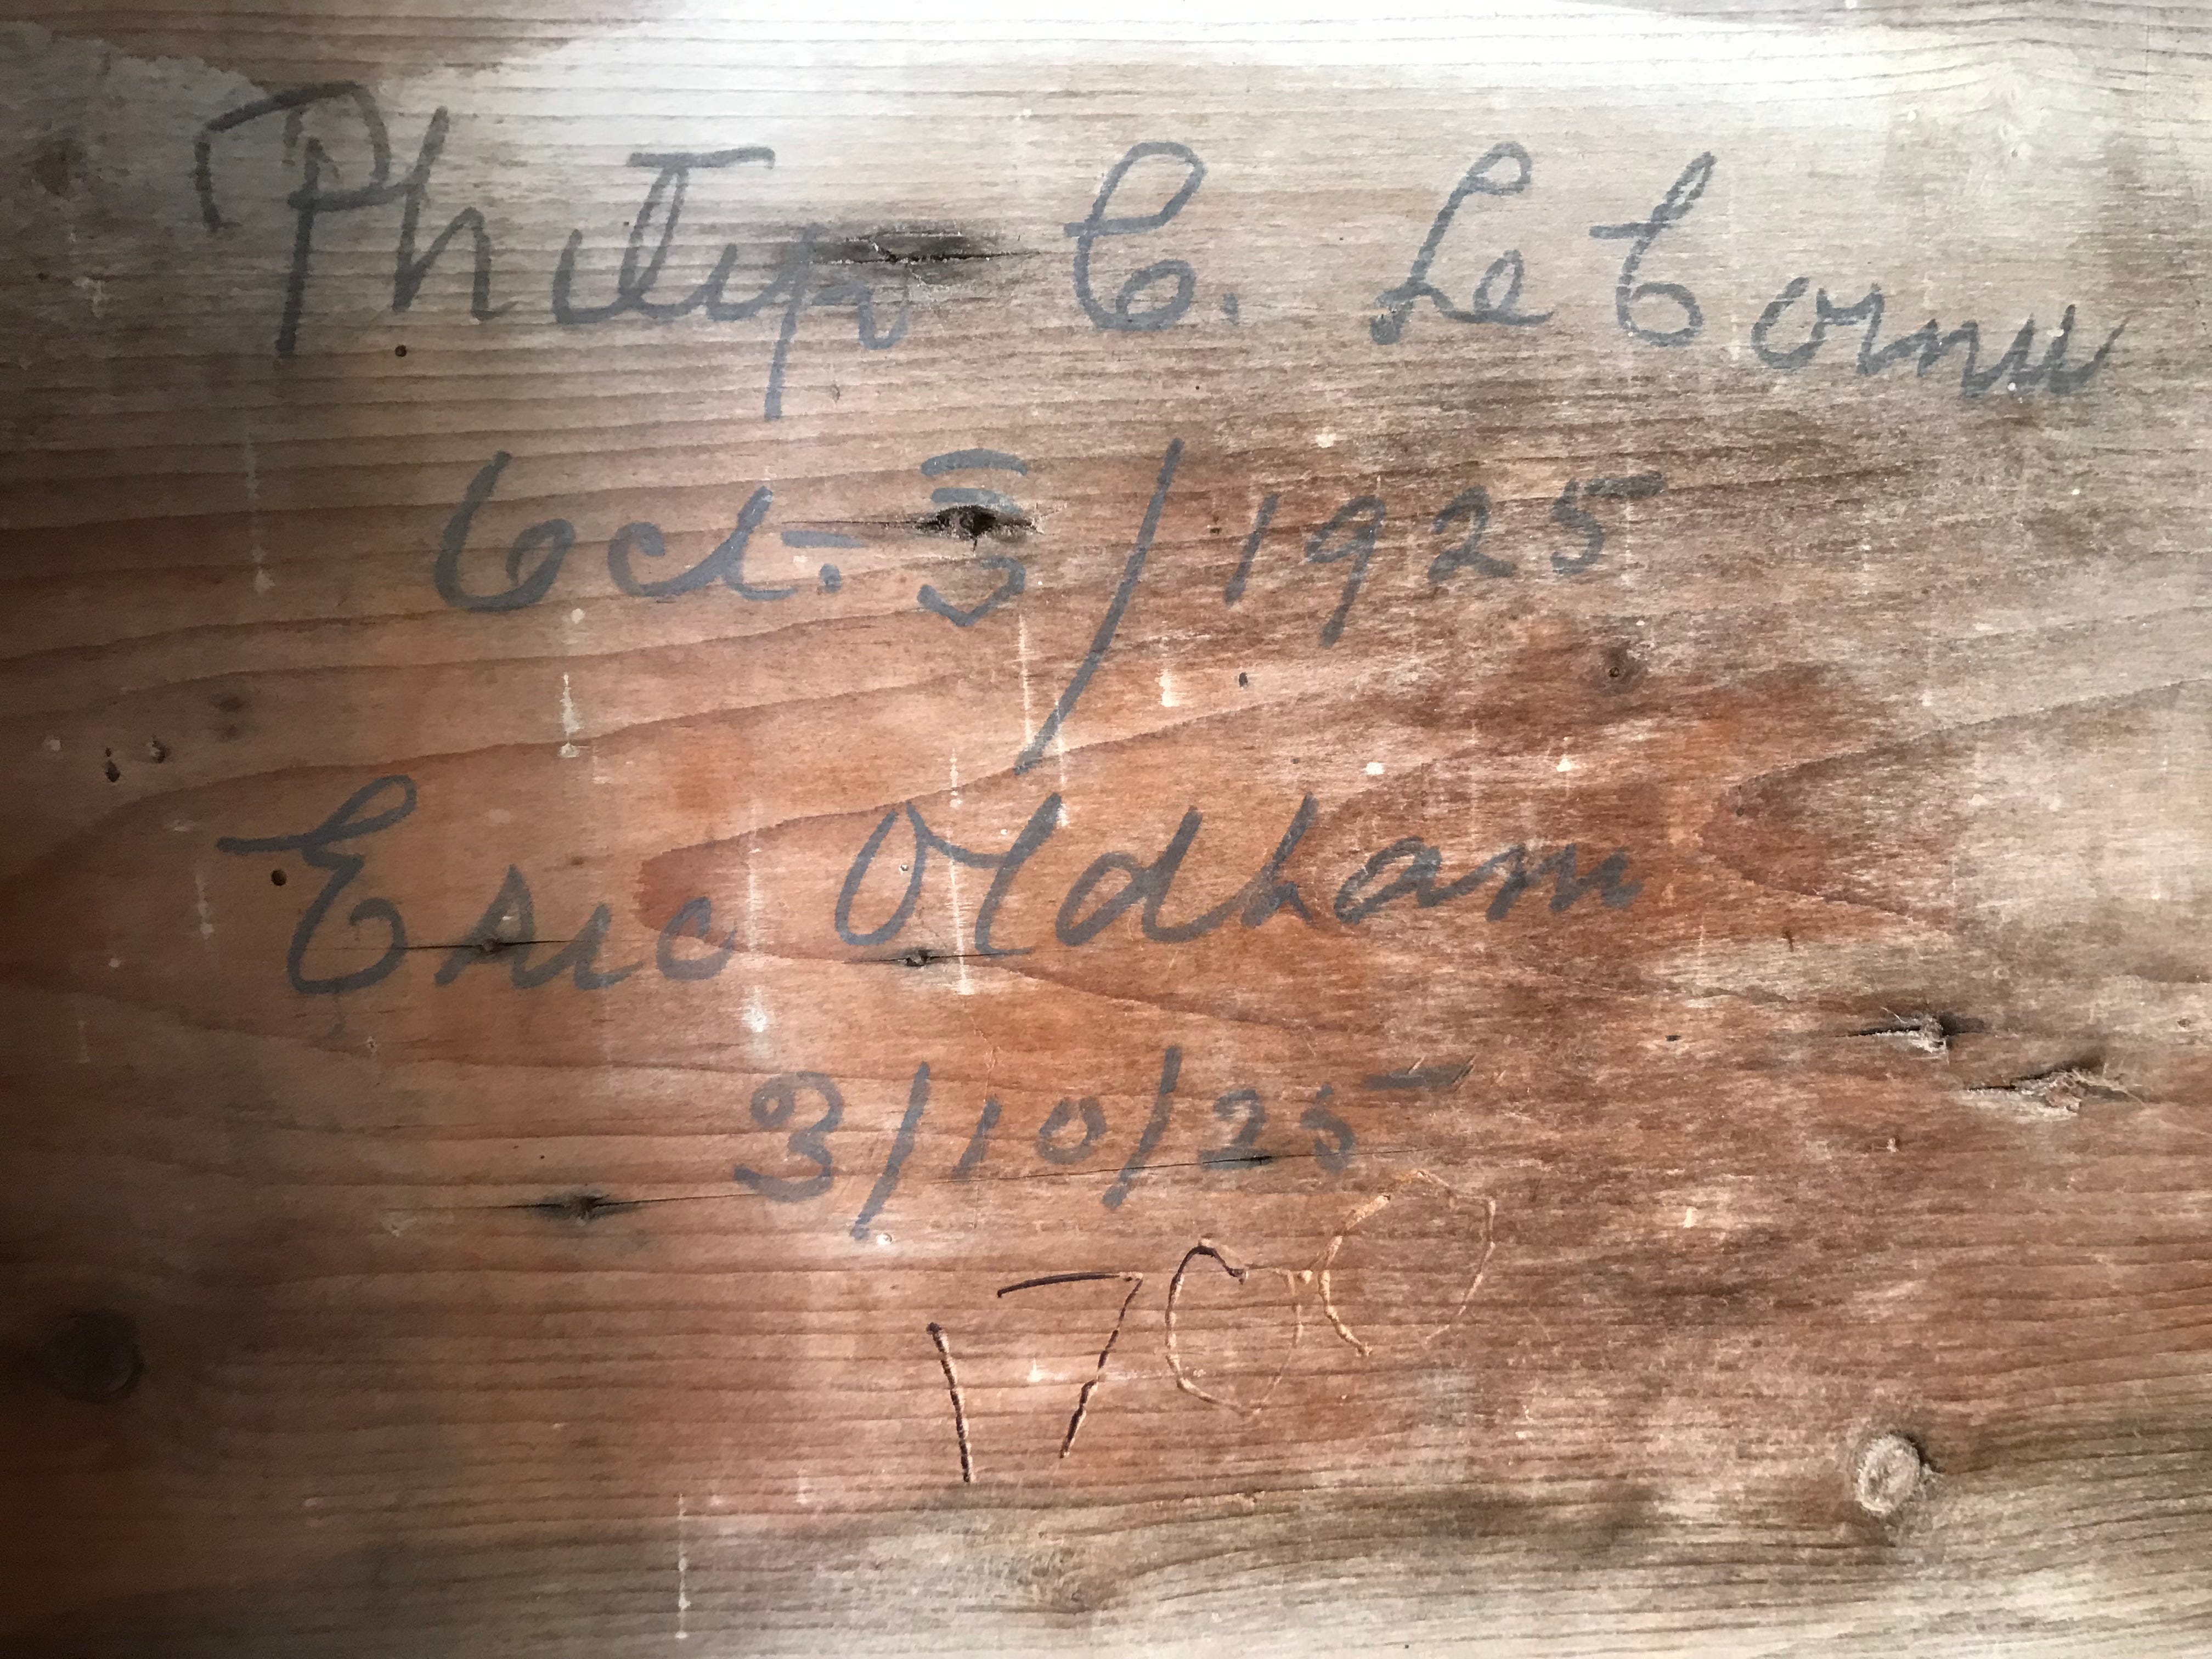 Philip C. Le Cornu
Oct. 3/1925
Eric Oldham
3/10/25
1700